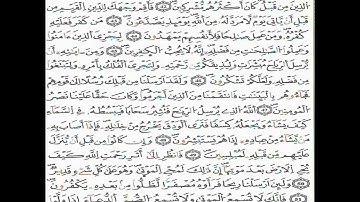 الذين من قبل كان أكثرهم مشركين فأقم وجهك للدين القيم من
قبل أن يأتي يوم لا مرد له من الله يومئذ يصدعون من كفر فعليه
كفره ومن عمل صلحا فلأنفسهم يمهدون ليجزي الذين ءامنوا
وعملوا الصلحت من فضله إنه لا يحب الكفرين ومن ءايته أن
يرسل الرياح مبشرت وليذيقكم من رحمته ولتجري الفلك بأمره ولتبتغوا
من فضله ولعلكم تشكرون ولقد أرسلنا من قبلك رسلا إلى قومهم
فجاءوهم بالبينت فانتقمنا من الذين أجرموا وكان حقا علينا نصر
المومنين الله الذي يرسل الريح فتثير سحابا فيبسطه في السماء
كيف يشاء ويجعله كسفا فترى الودق يخرج من خلله فإذا أصاب به
من يشاء من عباده إذا هم يستبشرون وإن كانوا من قبل أن ينزل
عليهم من قبله لمبلسين فانظر إلى أثر رحمت الله كيف
يحي الارض بعد موتها إن ذلك لمحي الموتى وهو على كل شيء قدير
ولئن أرسلنا ريحا فرأوه مصفرا لظلوا من بعده يكفرون
فإنك لا تسمع الموتى ولا تسمع الصم الدعاء إذا ولوا